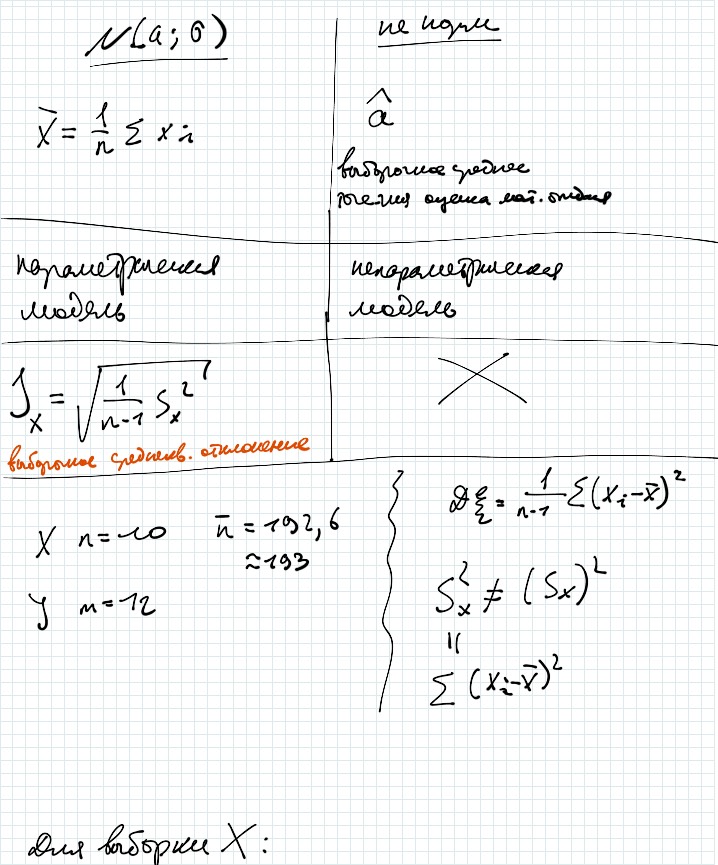 N(a; σ)
не норм
x̄ = 1/n Σ xi
â
выборочное среднее
точечная оценка мат. ожидания
параметрическая
модель
непараметрическая
модель
Jx = √(1/(n-1) Sx²)
выборочное среднекв. отклонение
X n=10 n̄ = 192,6
≈193
y m=12
Dξ = 1/(n-1) Σ(xi-x̄)²
Sx² ≠ (Sx)²
||
Σ (xi-x̄)²
Для выборки X: